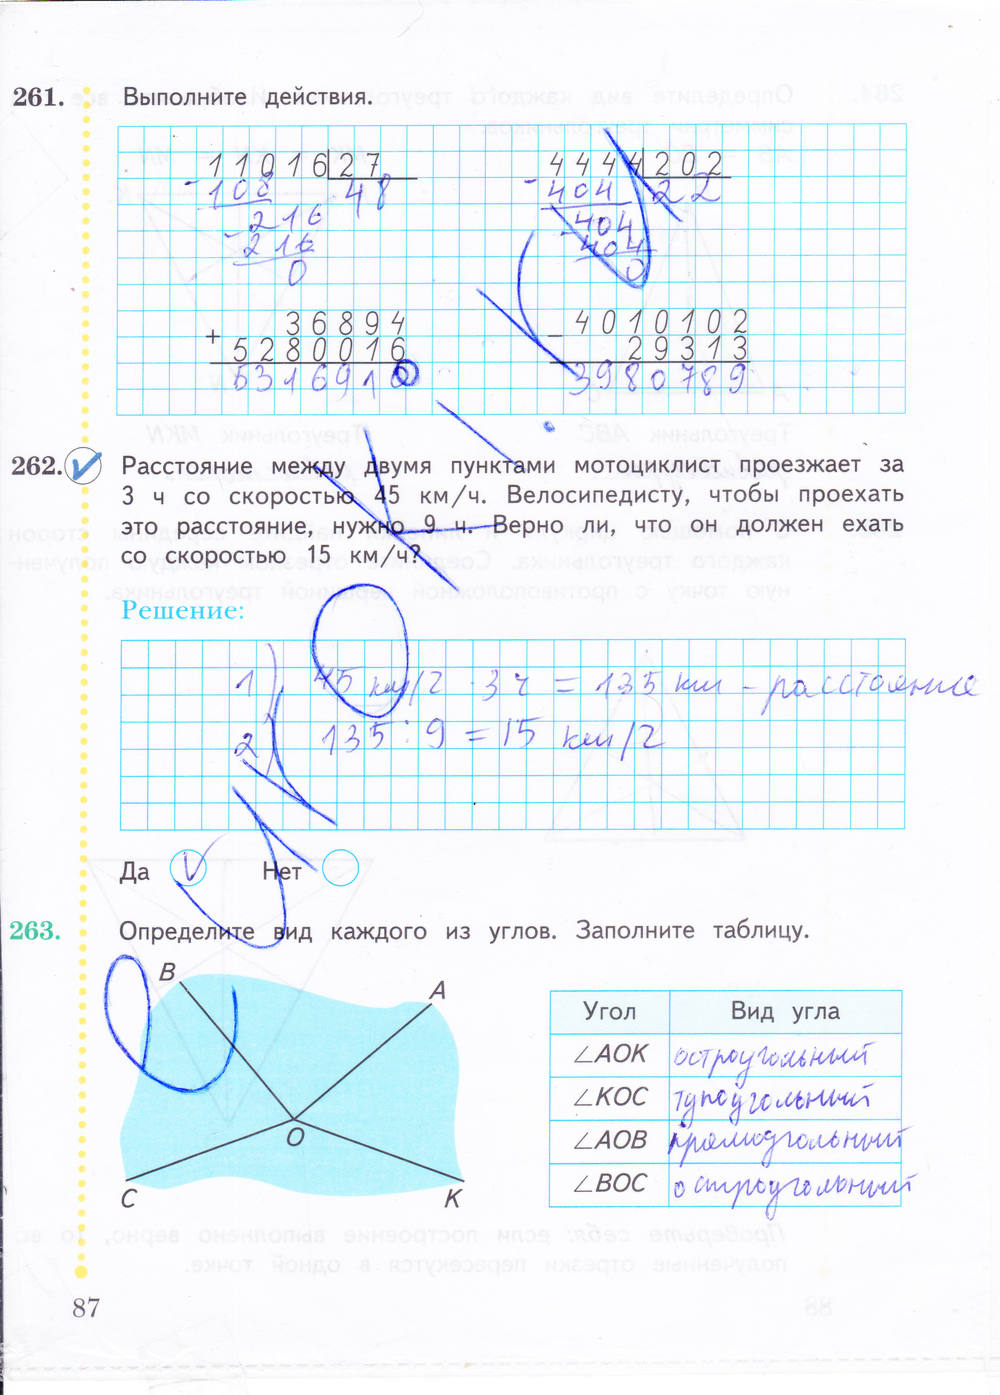 261. Выполните действия.
11016 27 4444 202
- 108 48 - 404 22
216 404
- 216 - 404
0 0
36894 4010102
+ 5280016 - 29313
5316910 3980789
262. Расстояние между двумя пунктами мотоциклист проезжает за
3 ч со скоростью 45 км/ч. Велосипедисту, чтобы проехать
это расстояние, нужно 9 ч. Верно ли, что он должен ехать
со скоростью 15 км/ч?
Решение:
1) 45 км/ч · 3 ч = 135 км - расстояние
2) 135 : 9 = 15 км/ч
Да V Нет
263. Определите вид каждого из углов. Заполните таблицу.
B
A
O
C
K
Угол Вид угла
∠AOK остроугольный
∠KOC тупоугольный
∠AOB прямоугольный
∠BOC остроугольный
87